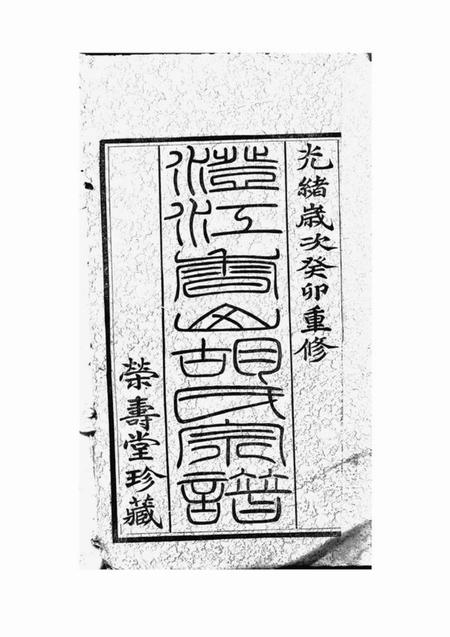 光緒歲次癸卯重修
澄江香山胡氏宗譜
榮壽堂珍藏